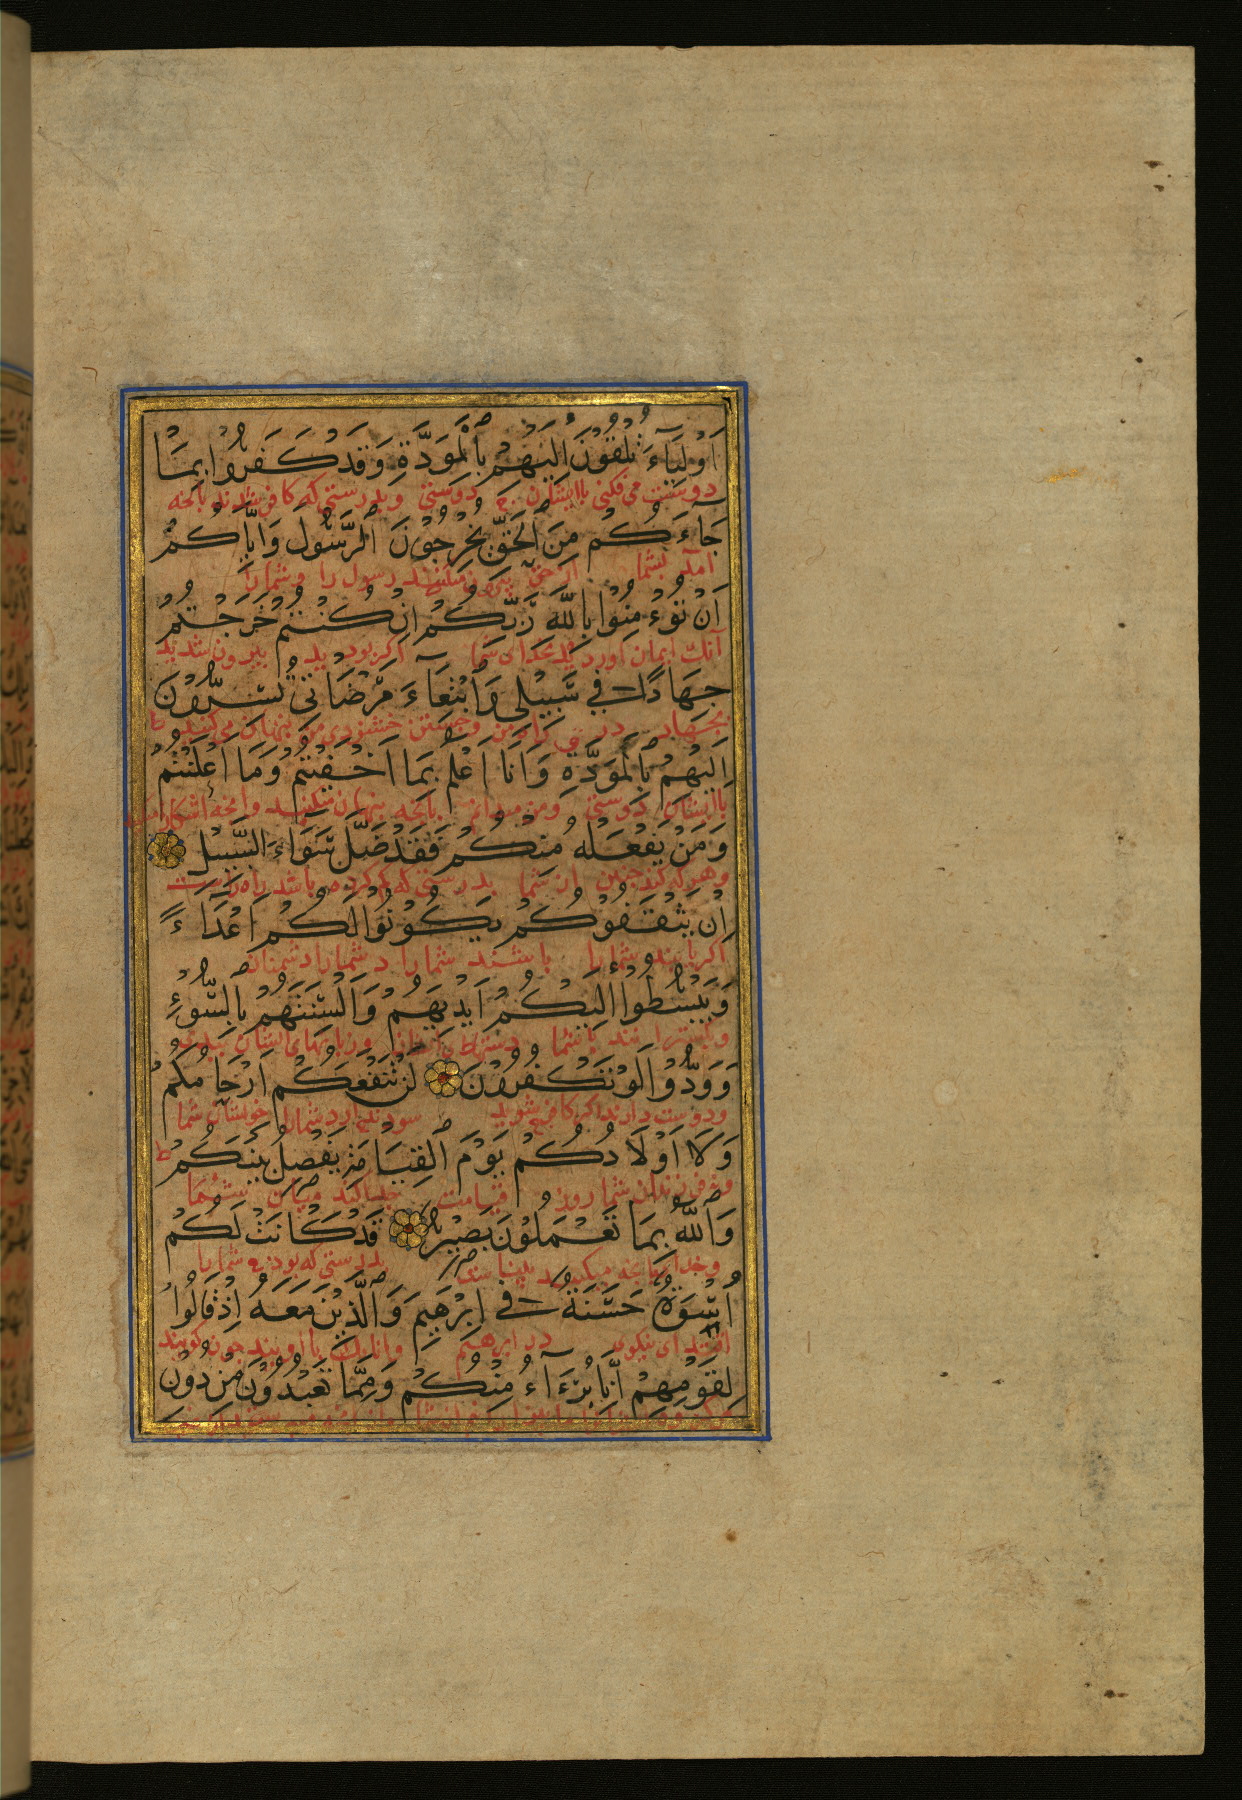 اَوْلِيَآءَ تُلْقُوْنَ اِلَيْهِمْ بِالْمَوَدَّةِ وَقَدْ كَفَرُوْا بِمَا
دوست می فکنی باایشان دوستی و بدرستی که کافر شدند بانچه
جَآءَكُمْ مِنَ الْحَقِّ يُخْرِجُوْنَ الرَّسُوْلَ وَاِيَّاكُمْ
آمد بشما از حق بیرون میکنند رسول را و شما را
اَنْ تُؤْمِنُوْا بِاللّٰهِ رَبِّكُمْ اِنْ كُنْتُمْ خَرَجْتُمْ
ایمان آوردید بخدای شما اگر بودید بیرون شدید
جِهَادًا فِي سَبِيْلِي وَابْتِغَآءَ مَرْضَاتِيْ تُسِرُّوْنَ
بجهاد در راه من و جستن خشنودی من پنهان می کنید
اِلَيْهِمْ بِالْمَوَدَّةِ وَاَنَا اَعْلَمُ بِمَا اَخْفَيْتُمْ وَمَا اَعْلَنْتُمْ
باایشان دوستی ومن میدانم بانچه پنهان میکنید وانچه اشکارا
وَمَنْ يَفْعَلْهُ مِنْكُمْ فَقَدْ ضَلَّ سَوَاءَ السَّبِيْلِ
وهر که کند چنین از شما بدرستی که کم کرده باشد راه راست
اِنْ يَثْقَفُوْكُمْ يَكُوْنُوْا لَكُمْ اَعْدَاءً
اکر یابند شما را باشند شما را دشمنان
وَيَبْسُطُوْا اِلَيْكُمْ اَيْدِيَهُمْ وَاَلْسِنَتَهُمْ بِالسُّوْءِ
با شما دستهای ایشان وزبانهای ایشان ببدی
وَوَدُّوْا لَوْ تَكْفُرُوْنَ لَنْ تَنْفَعَكُمْ اَرْحَامُكُمْ
ودوست دارند اکر کافر شوید سود ندارد شما را خویشان شما
وَلَا اَوْلَادُكُمْ يَوْمَ الْقِيٰمَةِ يَفْصِلُ بَيْنَكُمْ
ونه فرزندان شما روز قیامت جدا کند میان شما
وَاللّٰهُ بِمَا تَعْمَلُوْنَ بَصِيْرٌ قَدْ كَانَتْ لَكُمْ
وخدای بانچه میکنید بیناست بدرستی که بود شما را
اُسْوَةٌ حَسَنَةٌ فِي اِبْرٰهِيْمَ وَالَّذِيْنَ مَعَهُ اِذْ قَالُوْا
نیکوی در ابرهیم وانان که با او بودند چون کویند
لِقَوْمِهِمْ اِنَّا بُرَءَآءُ مِنْكُمْ وَمِمَّا تَعْبُدُوْنَ مِنْ دُوْنِ